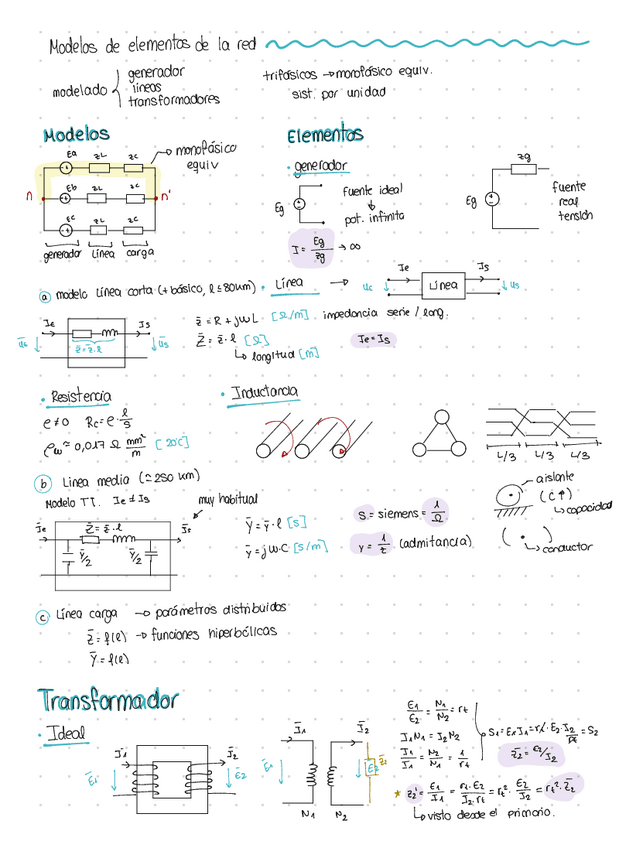 Modelos de elementos de la red
modelado
generador
líneas
transformadores
trifásicos → monofásico equiv.
sist. por unidad
Modelos
Elementos
Ea ZL ZC
→ monofásico
equiv
n
Eb ZL ZC
n'
Ec ZL ZC
generador línea carga
• generador
Eg
fuente ideal
↓
pot. infinita
I = Eg/Zg → ∞
Zg
Eg
fuente
real
tensión
a modelo línea corta (+ básico, l ≤ 80km)
• Línea →
Ie Is
Línea
Ie Is
z̄ = z̄·l
z̄ = R + jωL [Ω/m] impedancia serie / long.
Z̄ = z̄·l [Ω]
↳ longitud [m]
Ie = Is
• Resistencia
Rc = ρ·l/s
≈ 0,017 Ω mm²/m [20°C]
• Inductancia
L/3 L/3 L/3
b Linea media (≃ 250 km)
Modelo TT. Ie ≠ Is
muy habitual
Īe Īs
Z̄ = z̄·l
Ȳ/2 Ȳ/2
Ȳ = ȳ·l [s]
ȳ = jω·C [s/m]
S = siemens = 1/Ω
Y = 1/z (admitancia)
aislante
(C↑)
↳ capacidad
conductor
c Línea carga → parámetros distribuidos
Z̄ = f(l) → funciones hiperbólicas
Ȳ = f(l)
Transformador
• Ideal
Ī1 Ī2
Ē1 Ē2
Ī1 Ī2
Ē1 Ē2 Z̄2
N1 N2
E1/E2 = N1/N2 = rt
I1N1 = I2N2
= N2/N1 = 1/rt
S1 = E1·I1 = rt·E2·I2/rt = S2
Z̄2 = E2/I2
★ Z2' = E1/I1 = rt·E2/I2·rt = rt²·E2/I2 = rt²·Z̄2
↳ visto desde el primario.